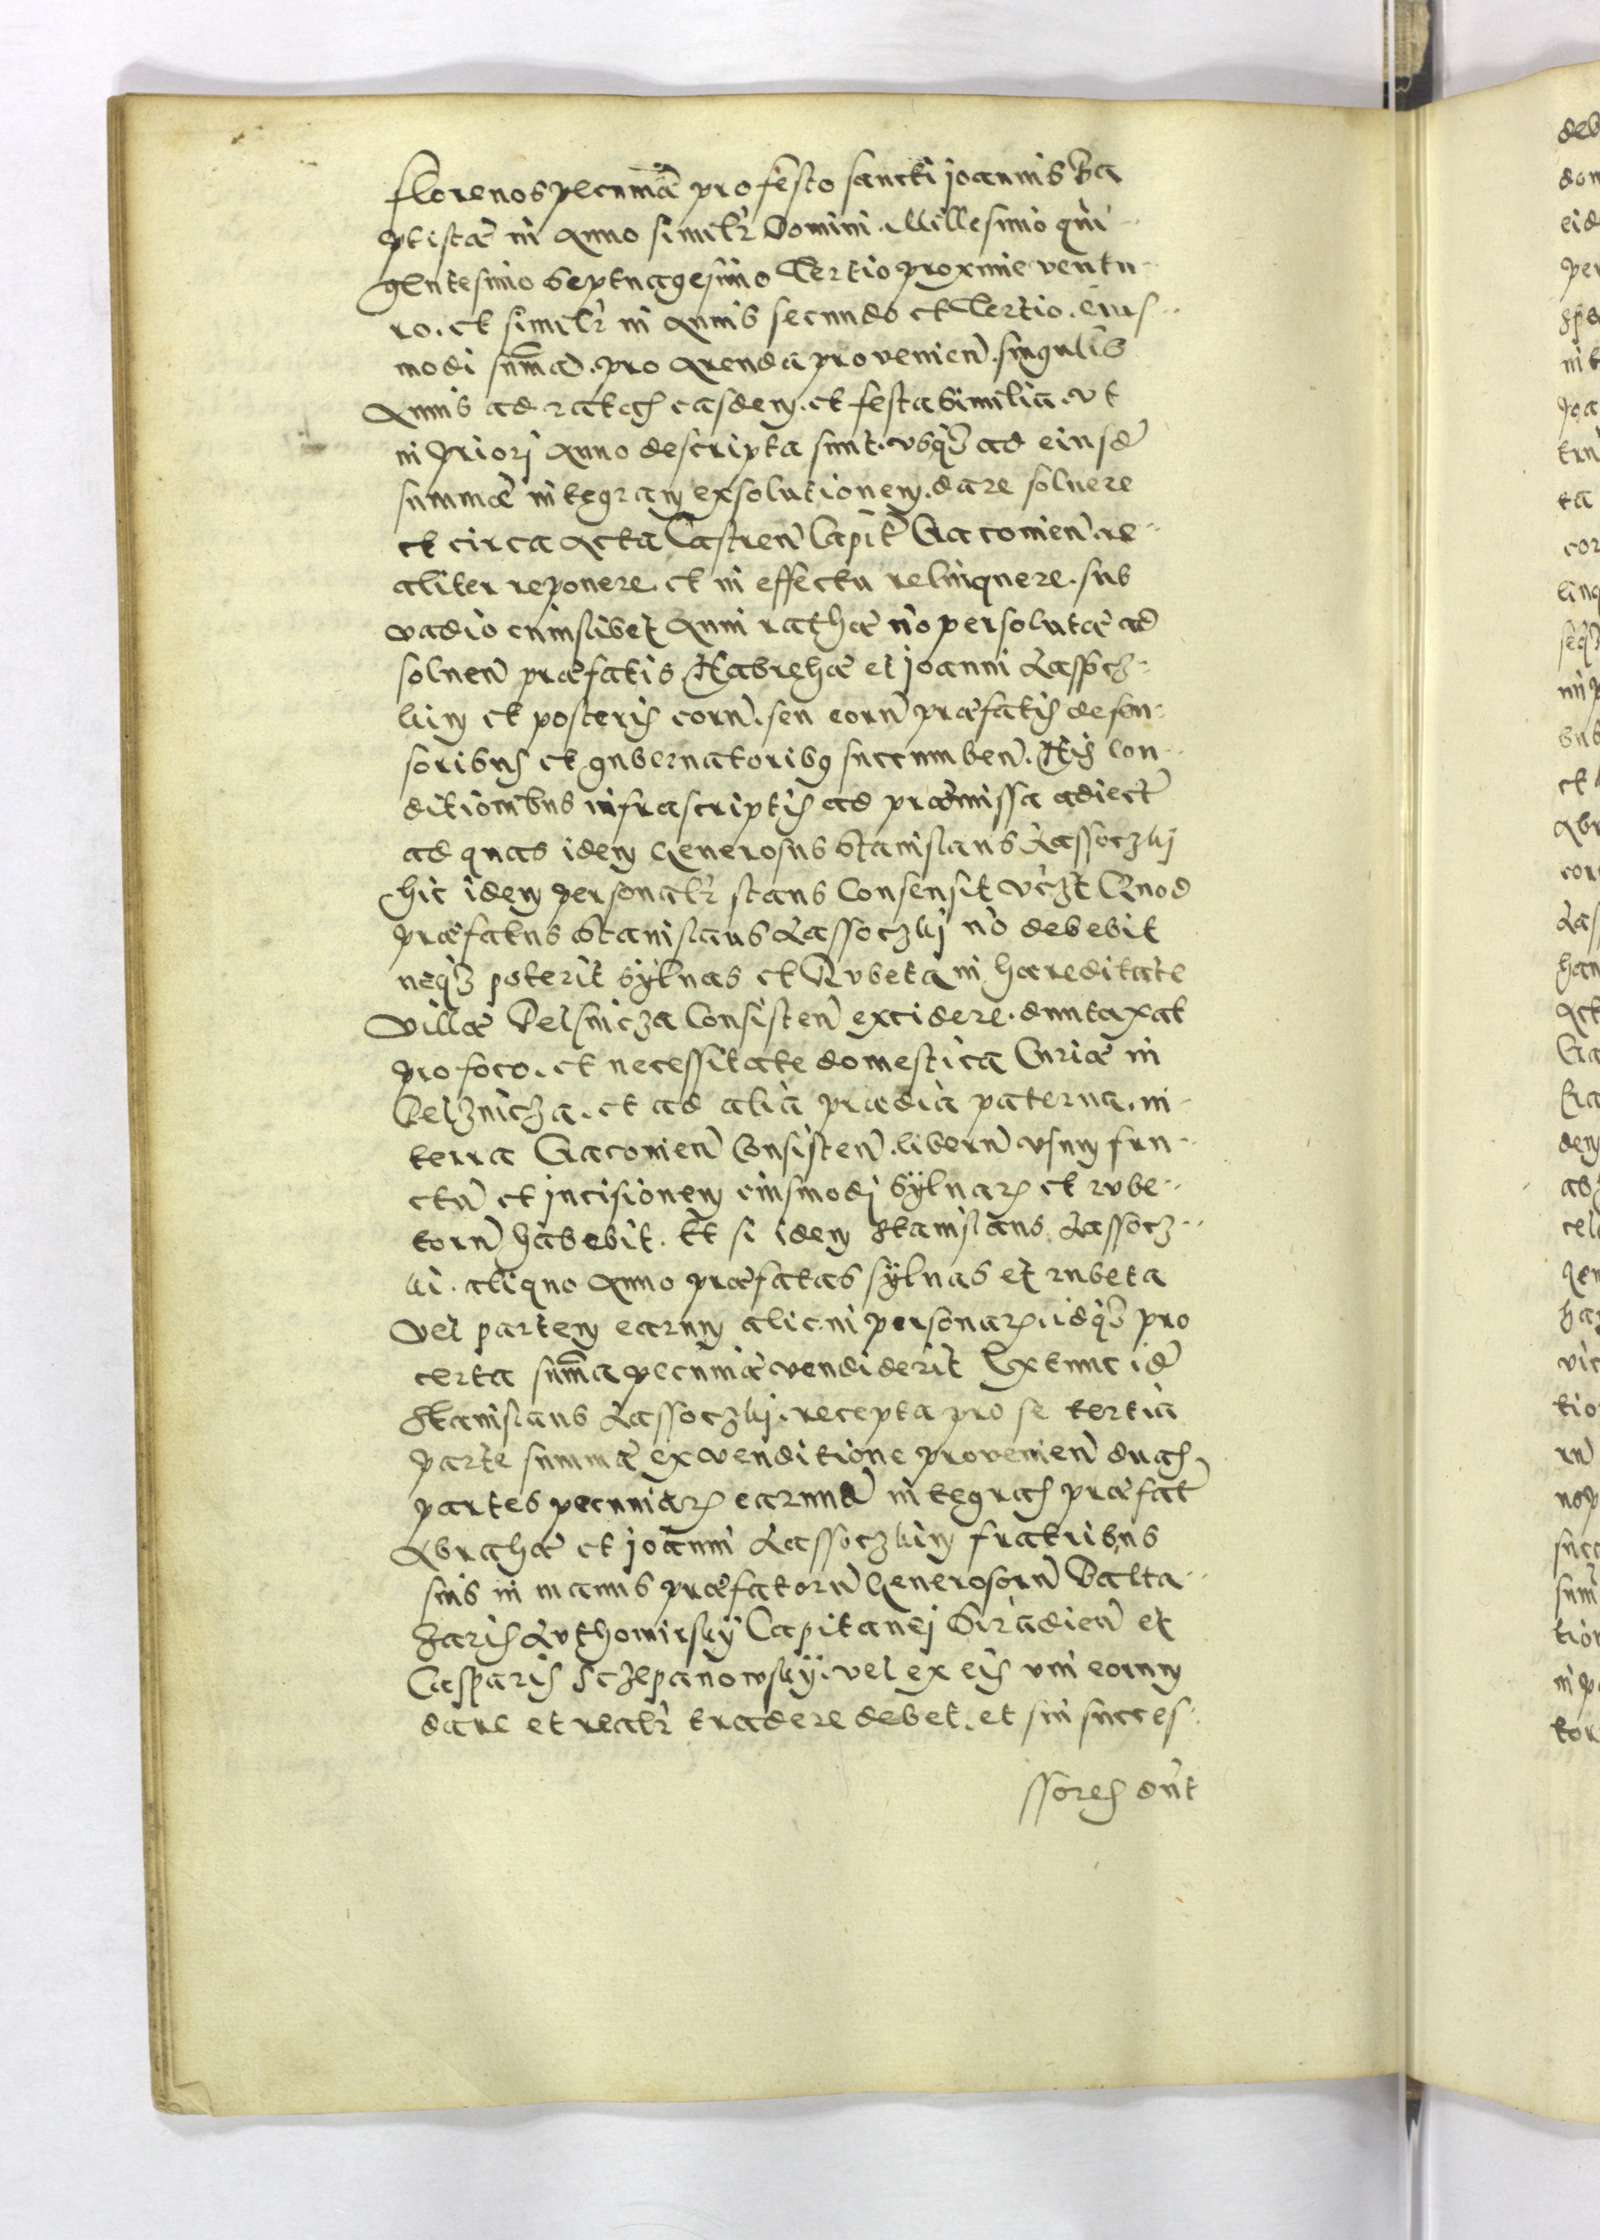 florenos pecuniæ pro festo sancti joannis Ba
ptistæ in Anno simil'r Domini Millesimo quin
gentesimo Septuagesimo Tertio proxime ventu
ro. et simil'r in Annis secundo et Tertio. eius
modi sum̄æ. pro Arenda provenien̄. singulis
Annis ad ratas easdem. et festa Similia. vt
in Priorj Anno descripta sunt. vsq3 ad eiusdē
summæ integram exsolutionem. dare soluere
et circa Acta Castren̄ Capit̄ Cracovien̄. re
aliter reponere. et in effectu relinquere. sub
vadio cuiuslibet Anni rathæ nō persolutæ ad
soluen̄ præfatis Abrahæ et joanni Lassocz
kim et posteris eorū. seu eorū præfatis defen
soribus et gubernatoribg succumben̄. His con
ditionibus infrascriptis ad præmissa adiect̄
ad quas idem Generosus Stanislaus Lassoczkj
hic idem personal'r stans Consensit vičzt Quod
præfatus Stanislaus Lassoczkj nō debebit
neq3 poterit sÿluas et Rvbeta in hæreditate
villæ Belsnicza Consisten̄ excidere. duntaxat
pro foco. et necessitate domestica Curiæ in
Belznicza. et ad alia prædia paterna. in
terra Cracovien̄ Consisten̄. liberū vsum fru
ctū et jncisionem eiusmodj Sÿluaꝝ et rvbe
torū habebit. Et si idem Stanislaus Lassocz
ki. aliquo Anno præfatas sÿluas et rubeta
vel partem earum alicui personaꝝ. idq3 pro
certa sum̄a pecuniæ vendiderit Extunc idē
Stanislaus Lassoczkj. recepta pro se tertia
parte summæ ex venditione provenien̄ duas
partes pecuniaꝝ earundē integras præfat̄
Abrahæ et joanni Lassoczkim fratribus
suis in manus præfatorū Generosorū Balta
zaris Lvthomirskÿ Capitanej Siradien̄ et
Casparis Sczepanowskÿ. vel ex eis vni eorum
dare et real'r tradere debet. et sui succes
ssores dn̄t